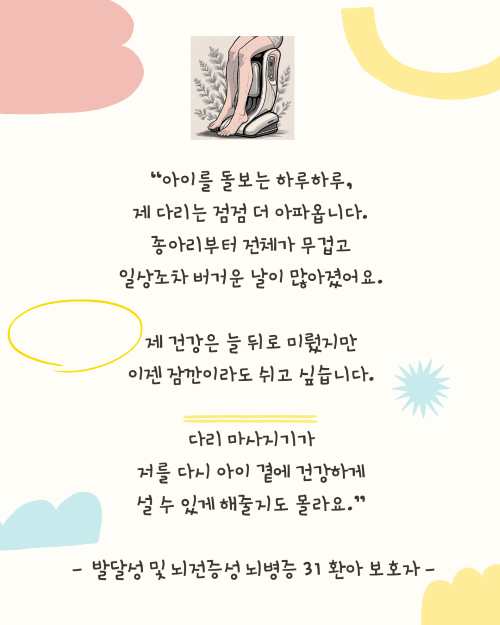 “아이를 돌보는 하루하루,
제 다리는 점점 더 아파옵니다.
종아리부터 전체가 무겁고
일상조차 버거운 날이 많아졌어요.
제 건강은 늘 뒤로 미뤘지만
이젠 잠깐이라도 쉬고 싶습니다.
다리 마사지기가
저를 다시 아이 곁에 건강하게
설 수 있게 해줄지도 몰라요.”
- 발달성 및 뇌전증성 뇌병증 31 환아 보호자 -